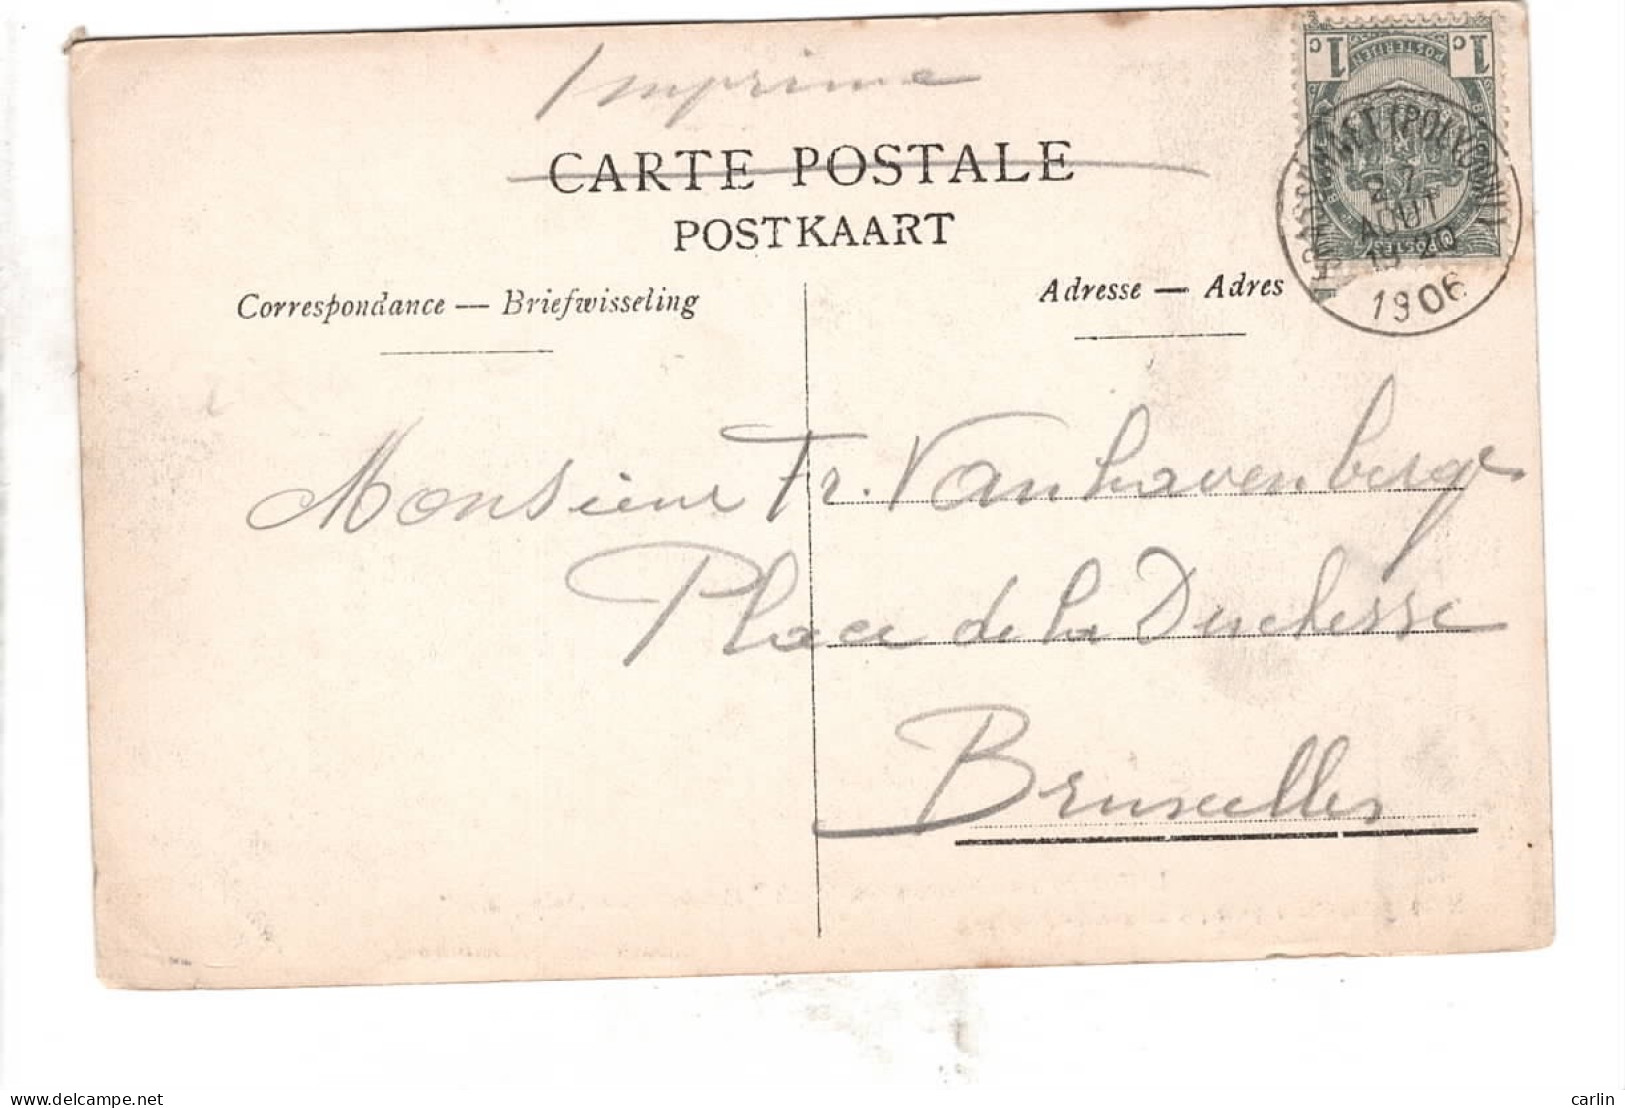 Imprime
CARTE POSTALE
POSTKAART
Correspondance — Briefwisseling
Adresse — Adres
1c 1c
POSTERIJEN
POSTES
(POLYGONE)
27
AOUT
19-20
1906
Monsieur Fr. Vanhavenberge
Place de la Duchesse
Bruxelles
delcampe.net
carlin